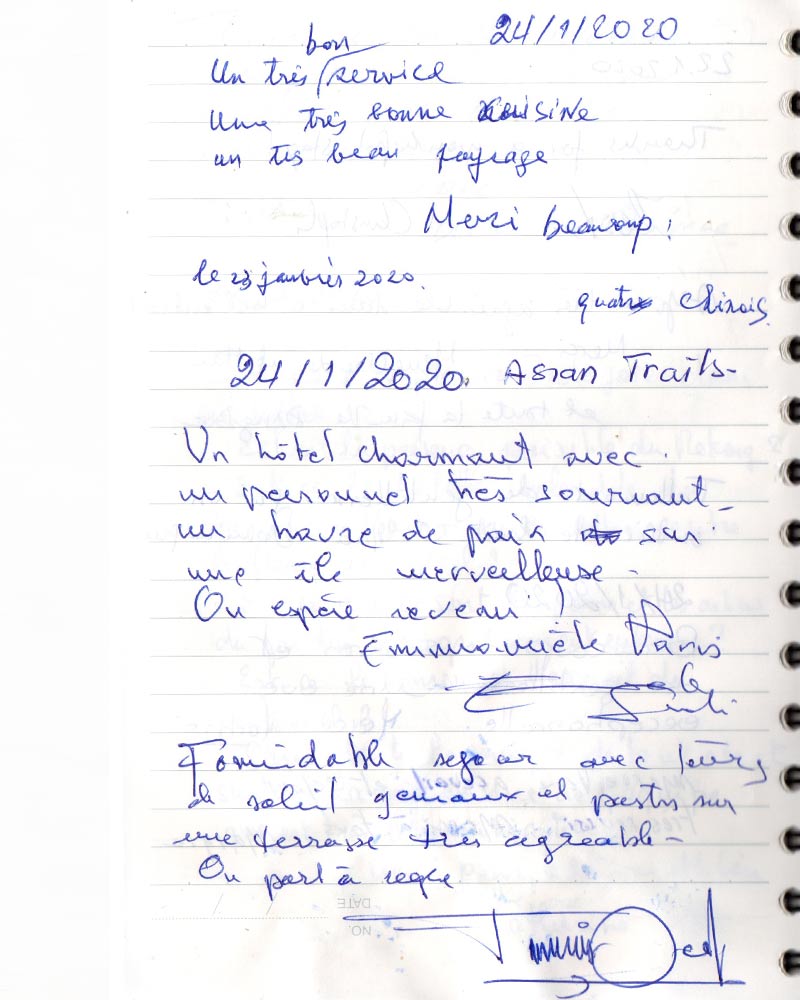 24/1/2020
bon
Un très service
Une très bonne cuisine
un tès beau paysage
Merci beaucoup !
le 23 janvier 2020.
quatre chinois
24/1/2020. Asian Trails-
Un hôtel charmant avec
un personnel très souriant_
un havre de paix sur
une île merveilleuse -
On espère revenir !
Emmanuèle Paris
Formidable sejour avec
de soleil geniaux et sur
une terrasse très agréable-
On part à
DATE
NO.